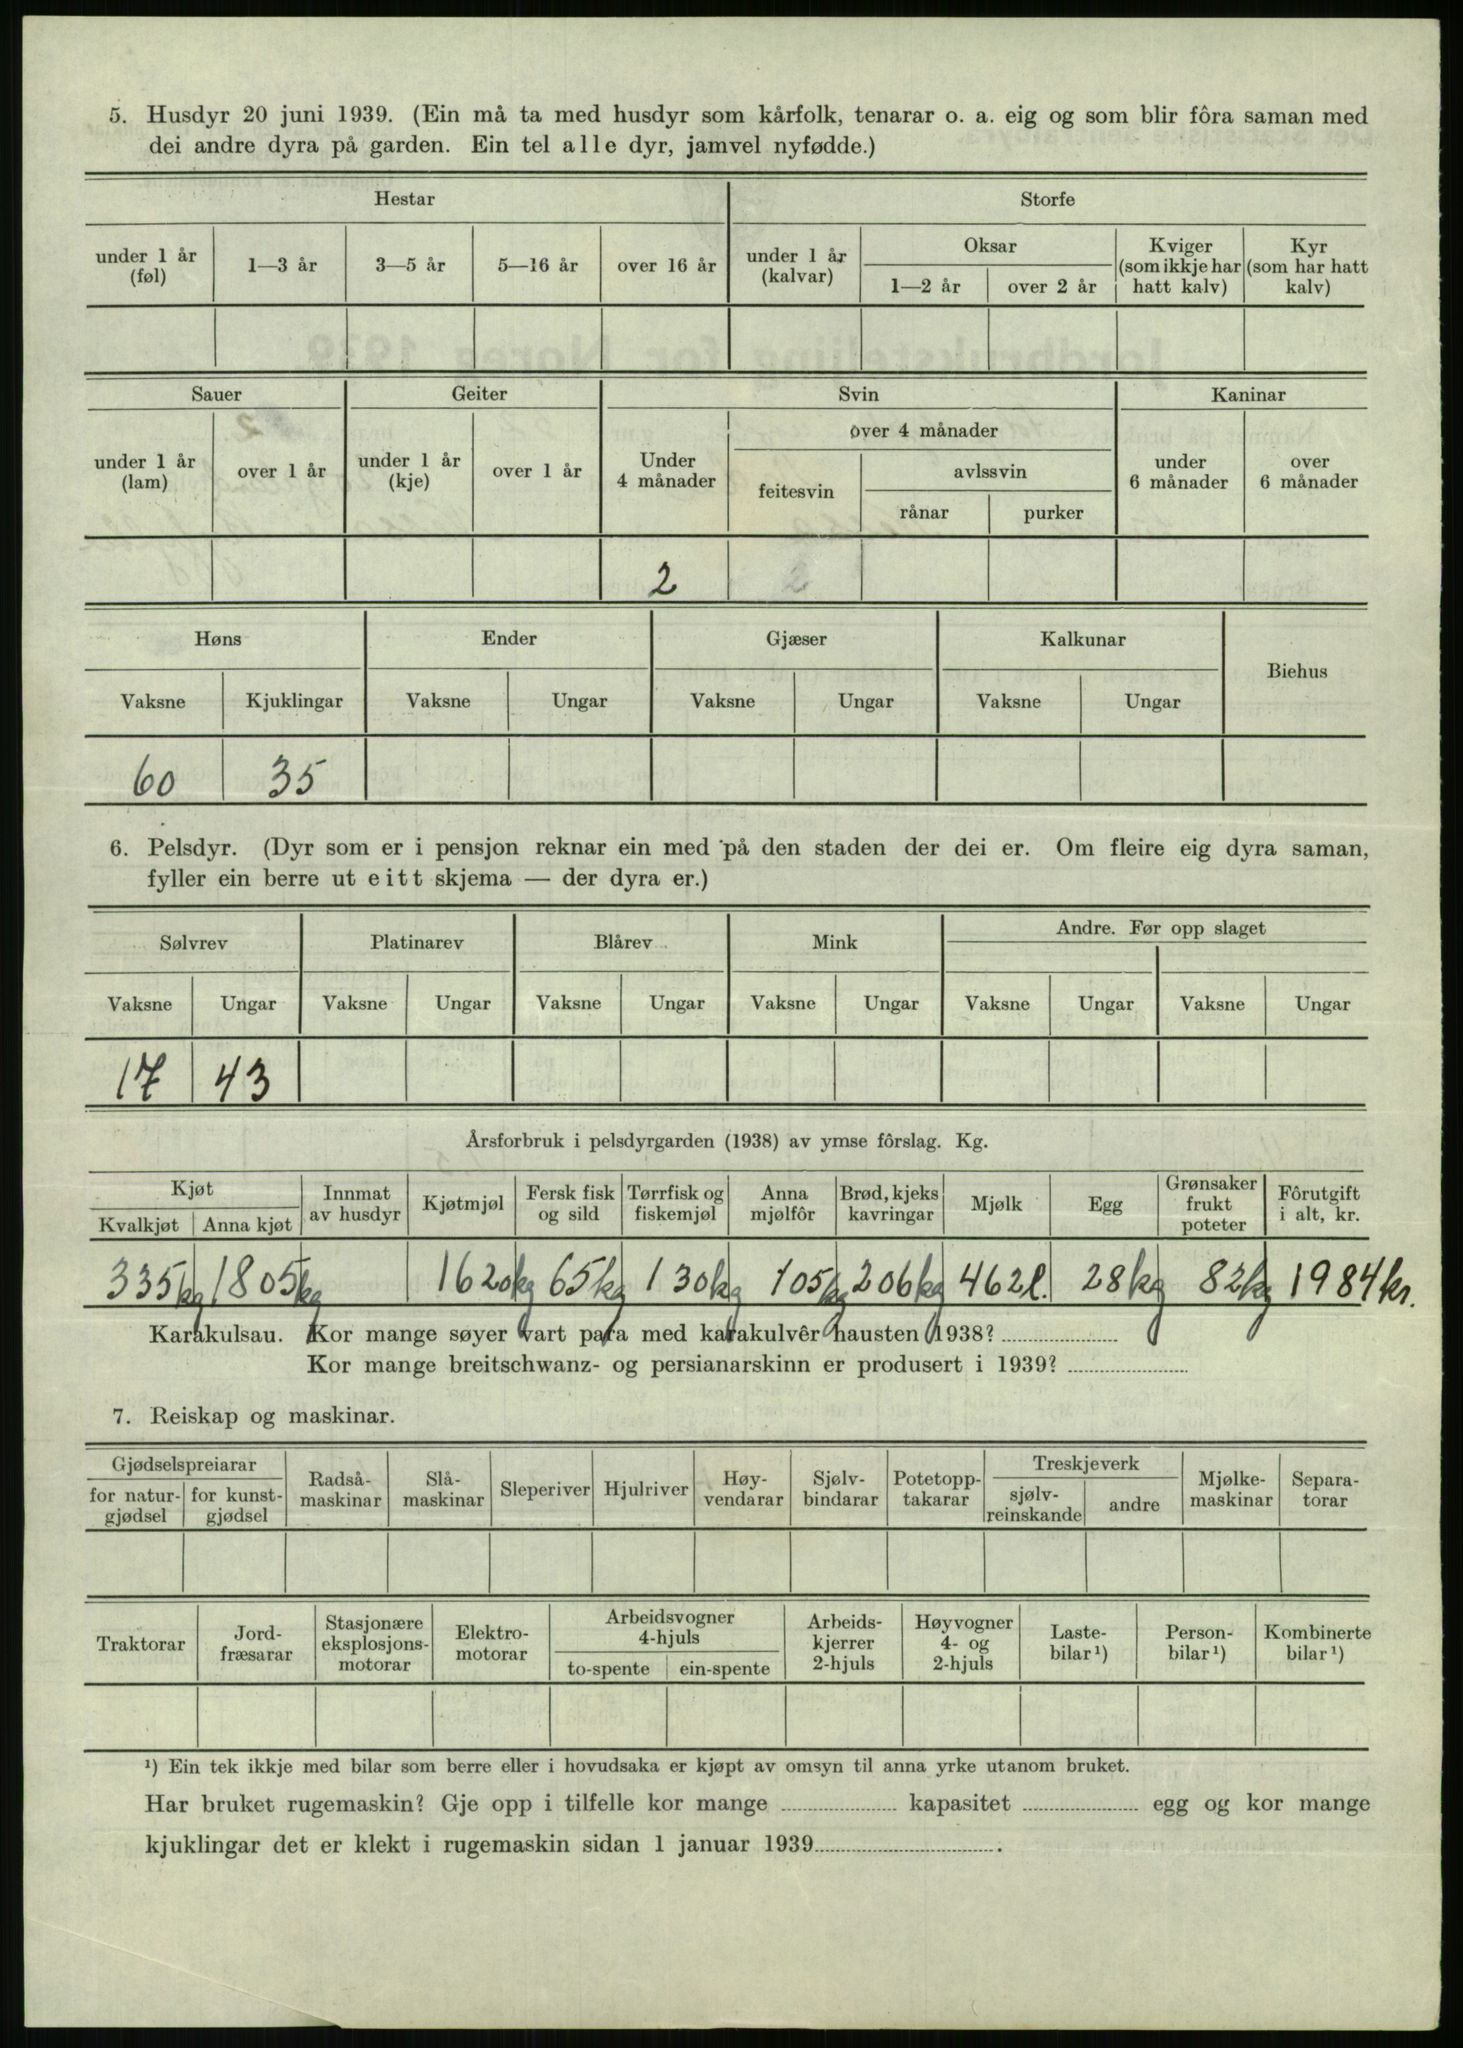 5. Husdyr 20 juni 1939. (Ein må ta med husdyr som kårfolk, tenarar o. a. eig og som blir fôra saman med
dei andre dyra på garden. Ein tel alle dyr, jamvel nyfødde.)
Hestar Storfe
under 1 år (føl) 1—3 år 3—5 år 5—16 år over 16 år under 1 år (kalvar) Oksar 1—2 år over 2 år Kviger (som ikkje har hatt kalv) Kyr (som har hatt kalv)
Sauer Geiter Svin Kaninar
under 1 år (lam) over 1 år under 1 år (kje) over 1 år Under 4 månader over 4 månader feitesvin avlssvin rånar purker under 6 månader over 6 månader
2
Høns Ender Gjæser Kalkunar Biehus
Vaksne Kjuklingar Vaksne Ungar Vaksne Ungar Vaksne Ungar
60 35
6. Pelsdyr. (Dyr som er i pensjon reknar ein med på den staden der dei er. Om fleire eig dyra saman,
fyller ein berre ut eitt skjema — der dyra er.)
Sølvrev Platinarev Blårev Mink Andre. Før opp slaget
Vaksne Ungar Vaksne Ungar Vaksne Ungar Vaksne Ungar Vaksne Ungar Vaksne Ungar
17 43
Årsforbruk i pelsdyrgarden (1938) av ymse fôrslag. Kg.
Kjøt Kvalkjøt Anna kjøt Innmat av husdyr Kjøtmjøl Fersk fisk og sild Tørrfisk og fiskemjøl Anna mjølfôr Brød, kjeks kavringar Mjølk Egg Grønsaker frukt poteter Fôrutgift i alt, kr.
335 kg 1805 kg 1620 kg 65 kg 130 kg 105 kg 206 kg 462 l. 28 kg 82 kg 1984 kr.
Karakulsau. Kor mange søyer vart para med karakulvêr hausten 1938?
Kor mange breitschwanz- og persianarskinn er produsert i 1939?
7. Reiskap og maskinar.
Gjødselspreiarar for natur-gjødsel for kunst-gjødsel Radså-maskinar Slå-maskinar Sleperiver Hjulriver Høy-vendarar Sjølv-bindarar Potetopp-takarar Treskjeverk sjølv-reinskande andre Mjølke-maskinar Separa-torar
Traktorar Jord-fræsarar Stasjonære eksplosjons-motorar Elektro-motorar Arbeidsvogner 4-hjuls to-spente ein-spente Arbeids-kjerrer 2-hjuls Høyvogner 4- og 2-hjuls Laste-bilar ¹) Person-bilar ¹) Kombinerte bilar ¹)
¹) Ein tek ikkje med bilar som berre eller i hovudsaka er kjøpt av omsyn til anna yrke utanom bruket.
Har bruket rugemaskin? Gje opp i tilfelle kor mange kapasitet egg og kor mange
kjuklingar det er klekt i rugemaskin sidan 1 januar 1939.